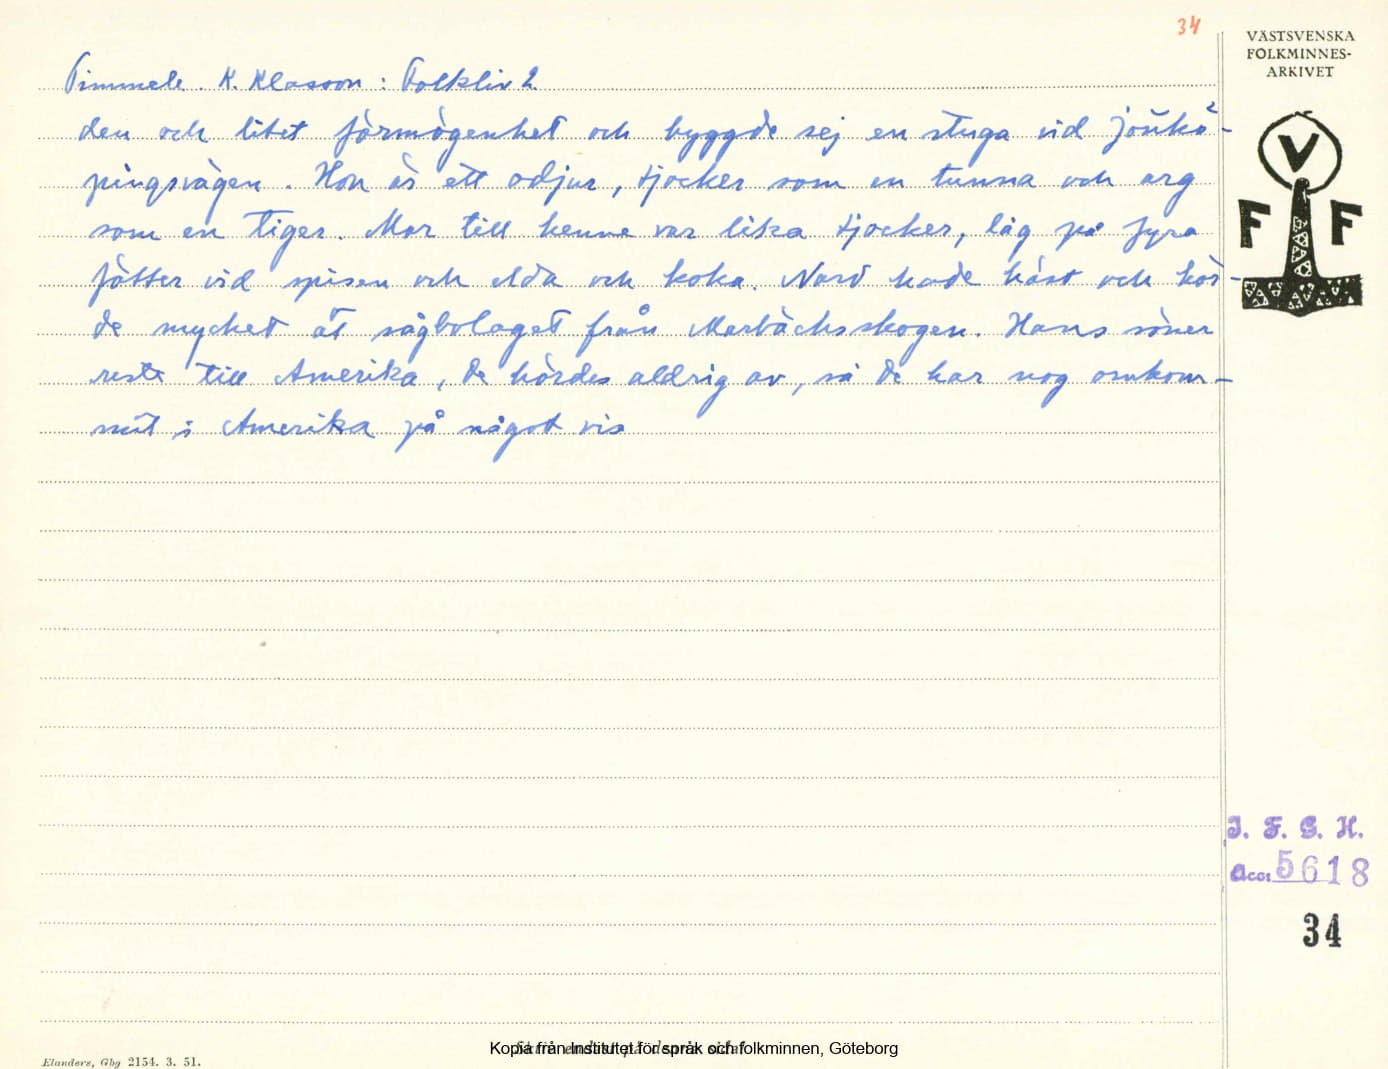 34
VÄSTSVENSKA
FOLKMINNES-
ARKIVET
V
F F
Timmele. K. Klasson: Folkliv 2
den och litet förmögenhet och byggde sej en stuga vid Jönkö-
pingsvägen. Hon är ett odjur, tjocker som en tunna och arg
som en tiger. Mor till henne var lika tjocker, låg på fyra
fötter vid spisen och elda och koka. Nord hade häst och kör-
de mycket åt sågbolaget från Marbäcksskogen. Hans söner
reste till Amerika, de hördes aldrig av, så de har nog omkom-
mit i Amerika på något vis
I. F. G. H.
Acc: 5618
34
Elanders, Gbg 2154. 3. 51.
Kopia från Institutet för språk och folkminnen, Göteborg